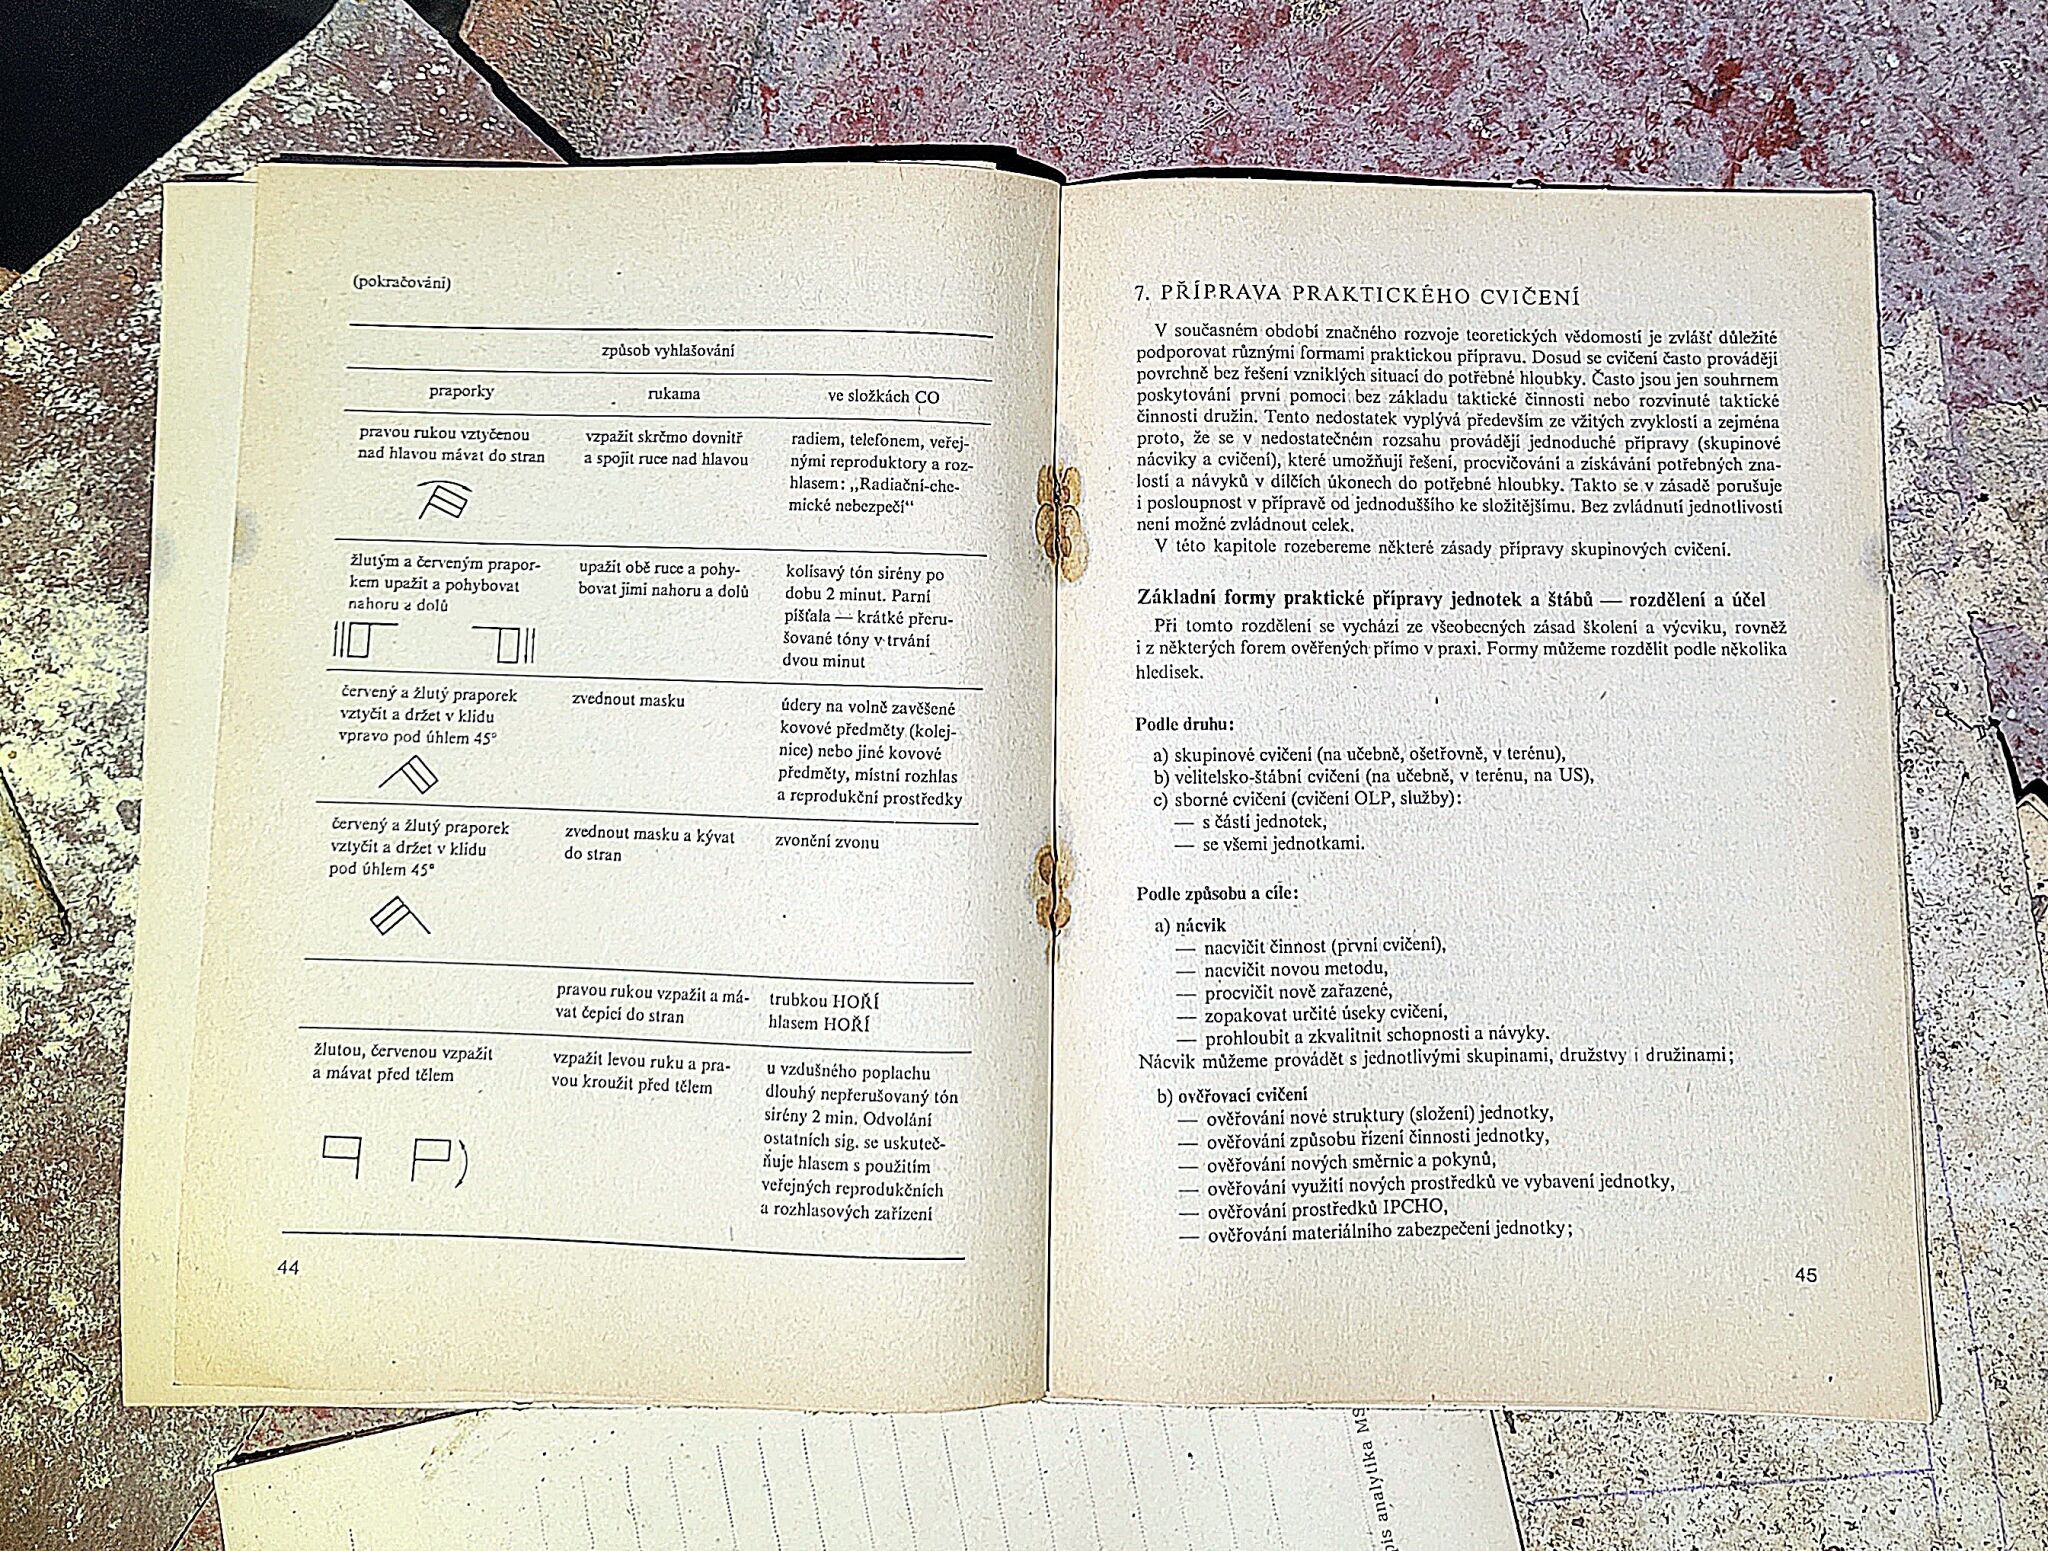 (pokračování)
způsob vyhlašování
praporky rukama ve složkách CO
pravou rukou vztyčenou
nad hlavou mávat do stran
vzpažit skrčmo dovnitř
a spojit ruce nad hlavou
radiem, telefonem, veřej-
nými reproduktory a roz-
hlasem: „Radiační-che-
mické nebezpečí“
žlutým a červeným prapor-
kem upažit a pohybovat
nahoru a dolů
upažit obě ruce a pohy-
bovat jimi nahoru a dolů
kolísavý tón sirény po
dobu 2 minut. Parní
píšťala — krátké přeru-
šované tóny v trvání
dvou minut
červený a žlutý praporek
vztyčit a držet v klidu
vpravo pod úhlem 45°
zvednout masku
údery na volně zavěšené
kovové předměty (kolej-
nice) nebo jiné kovové
předměty, místní rozhlas
a reprodukční prostředky
červený a žlutý praporek
vztyčit a držet v klidu
pod úhlem 45°
zvednout masku a kývat
do stran
zvonění zvonu
pravou rukou vzpažit a má-
vat čepicí do stran
trubkou HOŘÍ
hlasem HOŘÍ
žlutou, červenou vzpažit
a mávat před tělem
vzpažit levou ruku a pra-
vou kroužit před tělem
u vzdušného poplachu
dlouhý nepřerušovaný tón
sirény 2 min. Odvolání
ostatních sig. se uskuteč-
ňuje hlasem s použitím
veřejných reprodukčních
a rozhlasových zařízení
44
7. PŘÍPRAVA PRAKTICKÉHO CVIČENÍ
V současném období značného rozvoje teoretických vědomostí je zvlášť důležité
podporovat různými formami praktickou přípravu. Dosud se cvičení často provádějí
povrchně bez řešení vzniklých situací do potřebné hloubky. Často jsou jen souhrnem
poskytování první pomoci bez základu taktické činnosti nebo rozvinuté taktické
činnosti družin. Tento nedostatek vyplývá především ze vžitých zvyklostí a zejména
proto, že se v nedostatečném rozsahu provádějí jednoduché přípravy (skupinové
nácviky a cvičení), které umožňují řešení, procvičování a získávání potřebných zna-
lostí a návyků v dílčích úkonech do potřebné hloubky. Takto se v zásadě porušuje
i posloupnost v přípravě od jednoduššího ke složitějšímu. Bez zvládnutí jednotlivostí
není možné zvládnout celek.
V této kapitole rozebereme některé zásady přípravy skupinových cvičení.
Základní formy praktické přípravy jednotek a štábů — rozdělení a účel
Při tomto rozdělení se vychází ze všeobecných zásad školení a výcviku, rovněž
i z některých forem ověřených přímo v praxi. Formy můžeme rozdělit podle několika
hledisek.
Podle druhu:
a) skupinové cvičení (na učebně, ošetřovně, v terénu),
b) velitelsko-štábní cvičení (na učebně, v terénu, na US),
c) sborné cvičení (cvičení OLP, služby):
— s částí jednotek,
— se všemi jednotkami.
Podle způsobu a cíle:
a) nácvik
— nacvičit činnost (první cvičení),
— nacvičit novou metodu,
— procvičit nově zařazené,
— zopakovat určité úseky cvičení,
— prohloubit a zkvalitnit schopnosti a návyky.
Nácvik můžeme provádět s jednotlivými skupinami, družstvy i družinami;
b) ověřovací cvičení
— ověřování nové struktury (složení) jednotky,
— ověřování způsobu řízení činnosti jednotky,
— ověřování nových směrnic a pokynů,
— ověřování využití nových prostředků ve vybavení jednotky,
— ověřování prostředků IPCHO,
— ověřování materiálního zabezpečení jednotky;
45
analytika